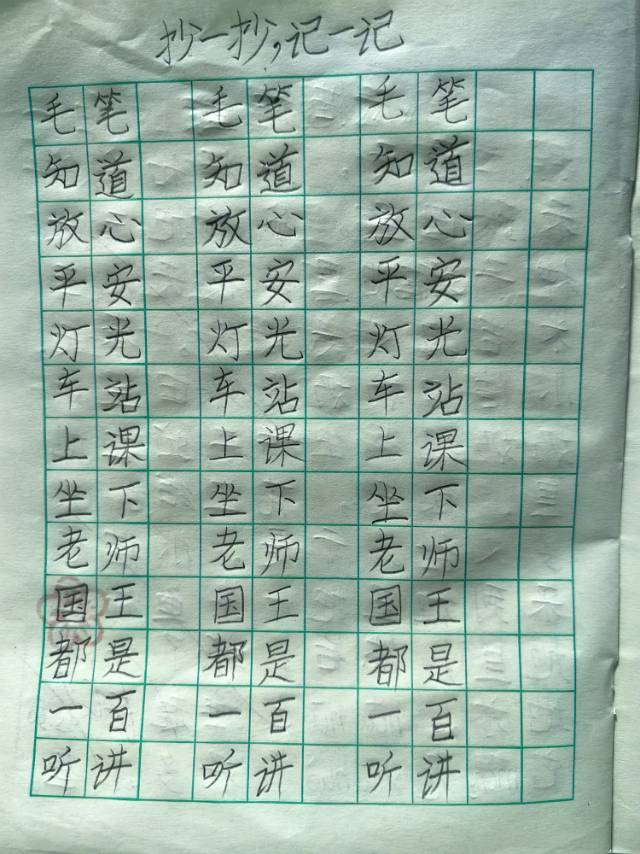 抄一抄,记一记
毛笔 毛笔 毛笔
知道 知道 知道
放心 放心 放心
平安 平安 平安
灯光 灯光 灯光
车站 车站 车站
上课 上课 上课
坐下 坐下 坐下
老师 老师 老师
国王 国王 国王
都是 都是 都是
一百 一百 一百
听讲 听讲 听讲